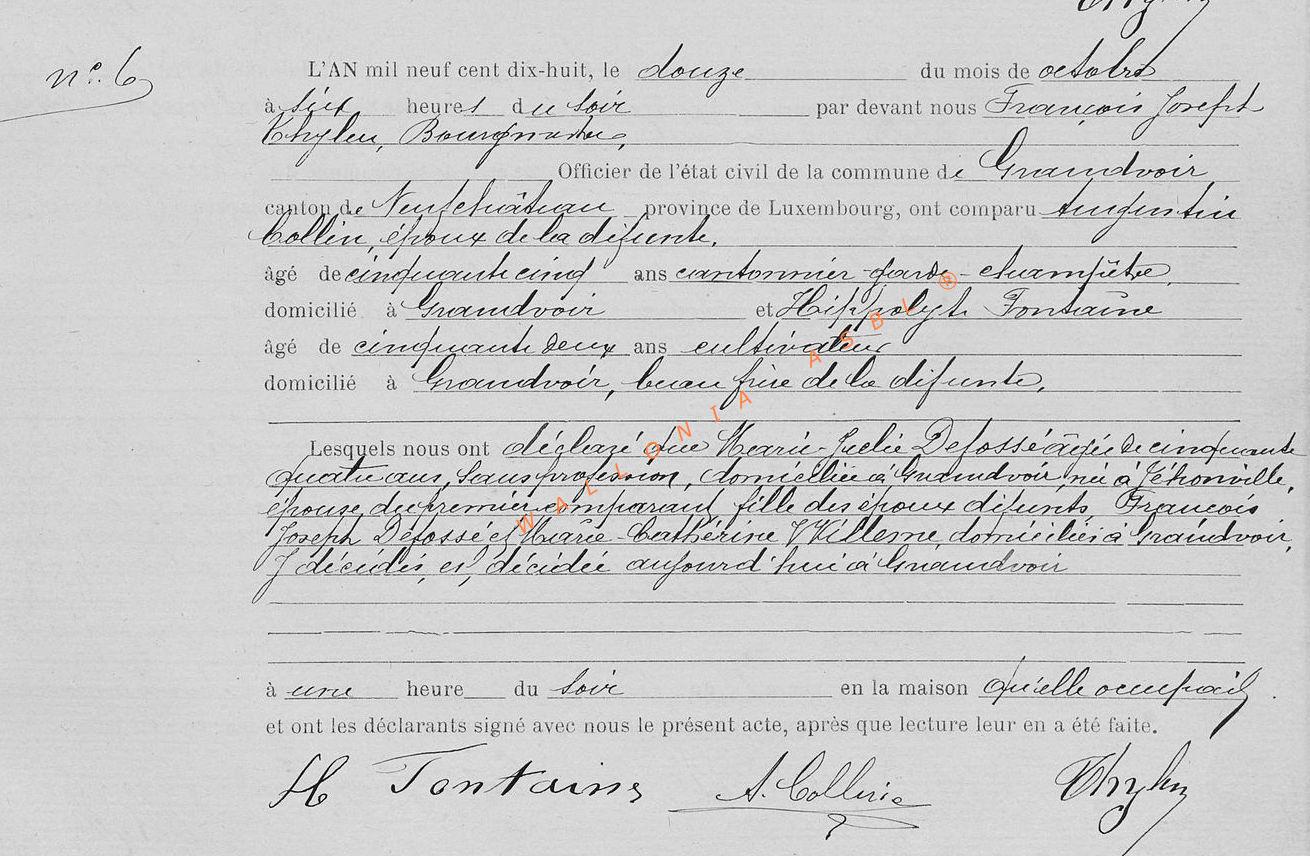 nº. 6
L'AN mil neuf cent dix-huit, le douze du mois de octobre
à six heures du soir par devant nous François Joseph
Thylen, Bourgmestre,
Officier de l'état civil de la commune de Grandvoir
canton de Neufchâteau province de Luxembourg, ont comparu Augustin
Collin, époux de la défunte.
âgé de cinquante cinq ans cantonnier-garde-champêtre,
domicilié à Grandvoir et Hippolyte Fontaine
âgé de cinquante deux ans cultivateur
domicilié à Grandvoir, beau frère de la défunte.
Lesquels nous ont déclaré que Marie-Julie Defossé âgée de cinquante
quatre ans, sans profession, domiciliée à Grandvoir, née à Jéhonville,
épouse du premier comparant, fille des époux défunts, François
Joseph Défossé et Marie-Cathérine Willeme, domiciliés à Grandvoir,
y décédés, est décédée aujourd'hui à Grandvoir
à une heure du soir en la maison qu'elle occupait
et ont les déclarants signé avec nous le présent acte, après que lecture leur en a été faite.
H Fontaine A. Collin
WALLONIA ASBL ®